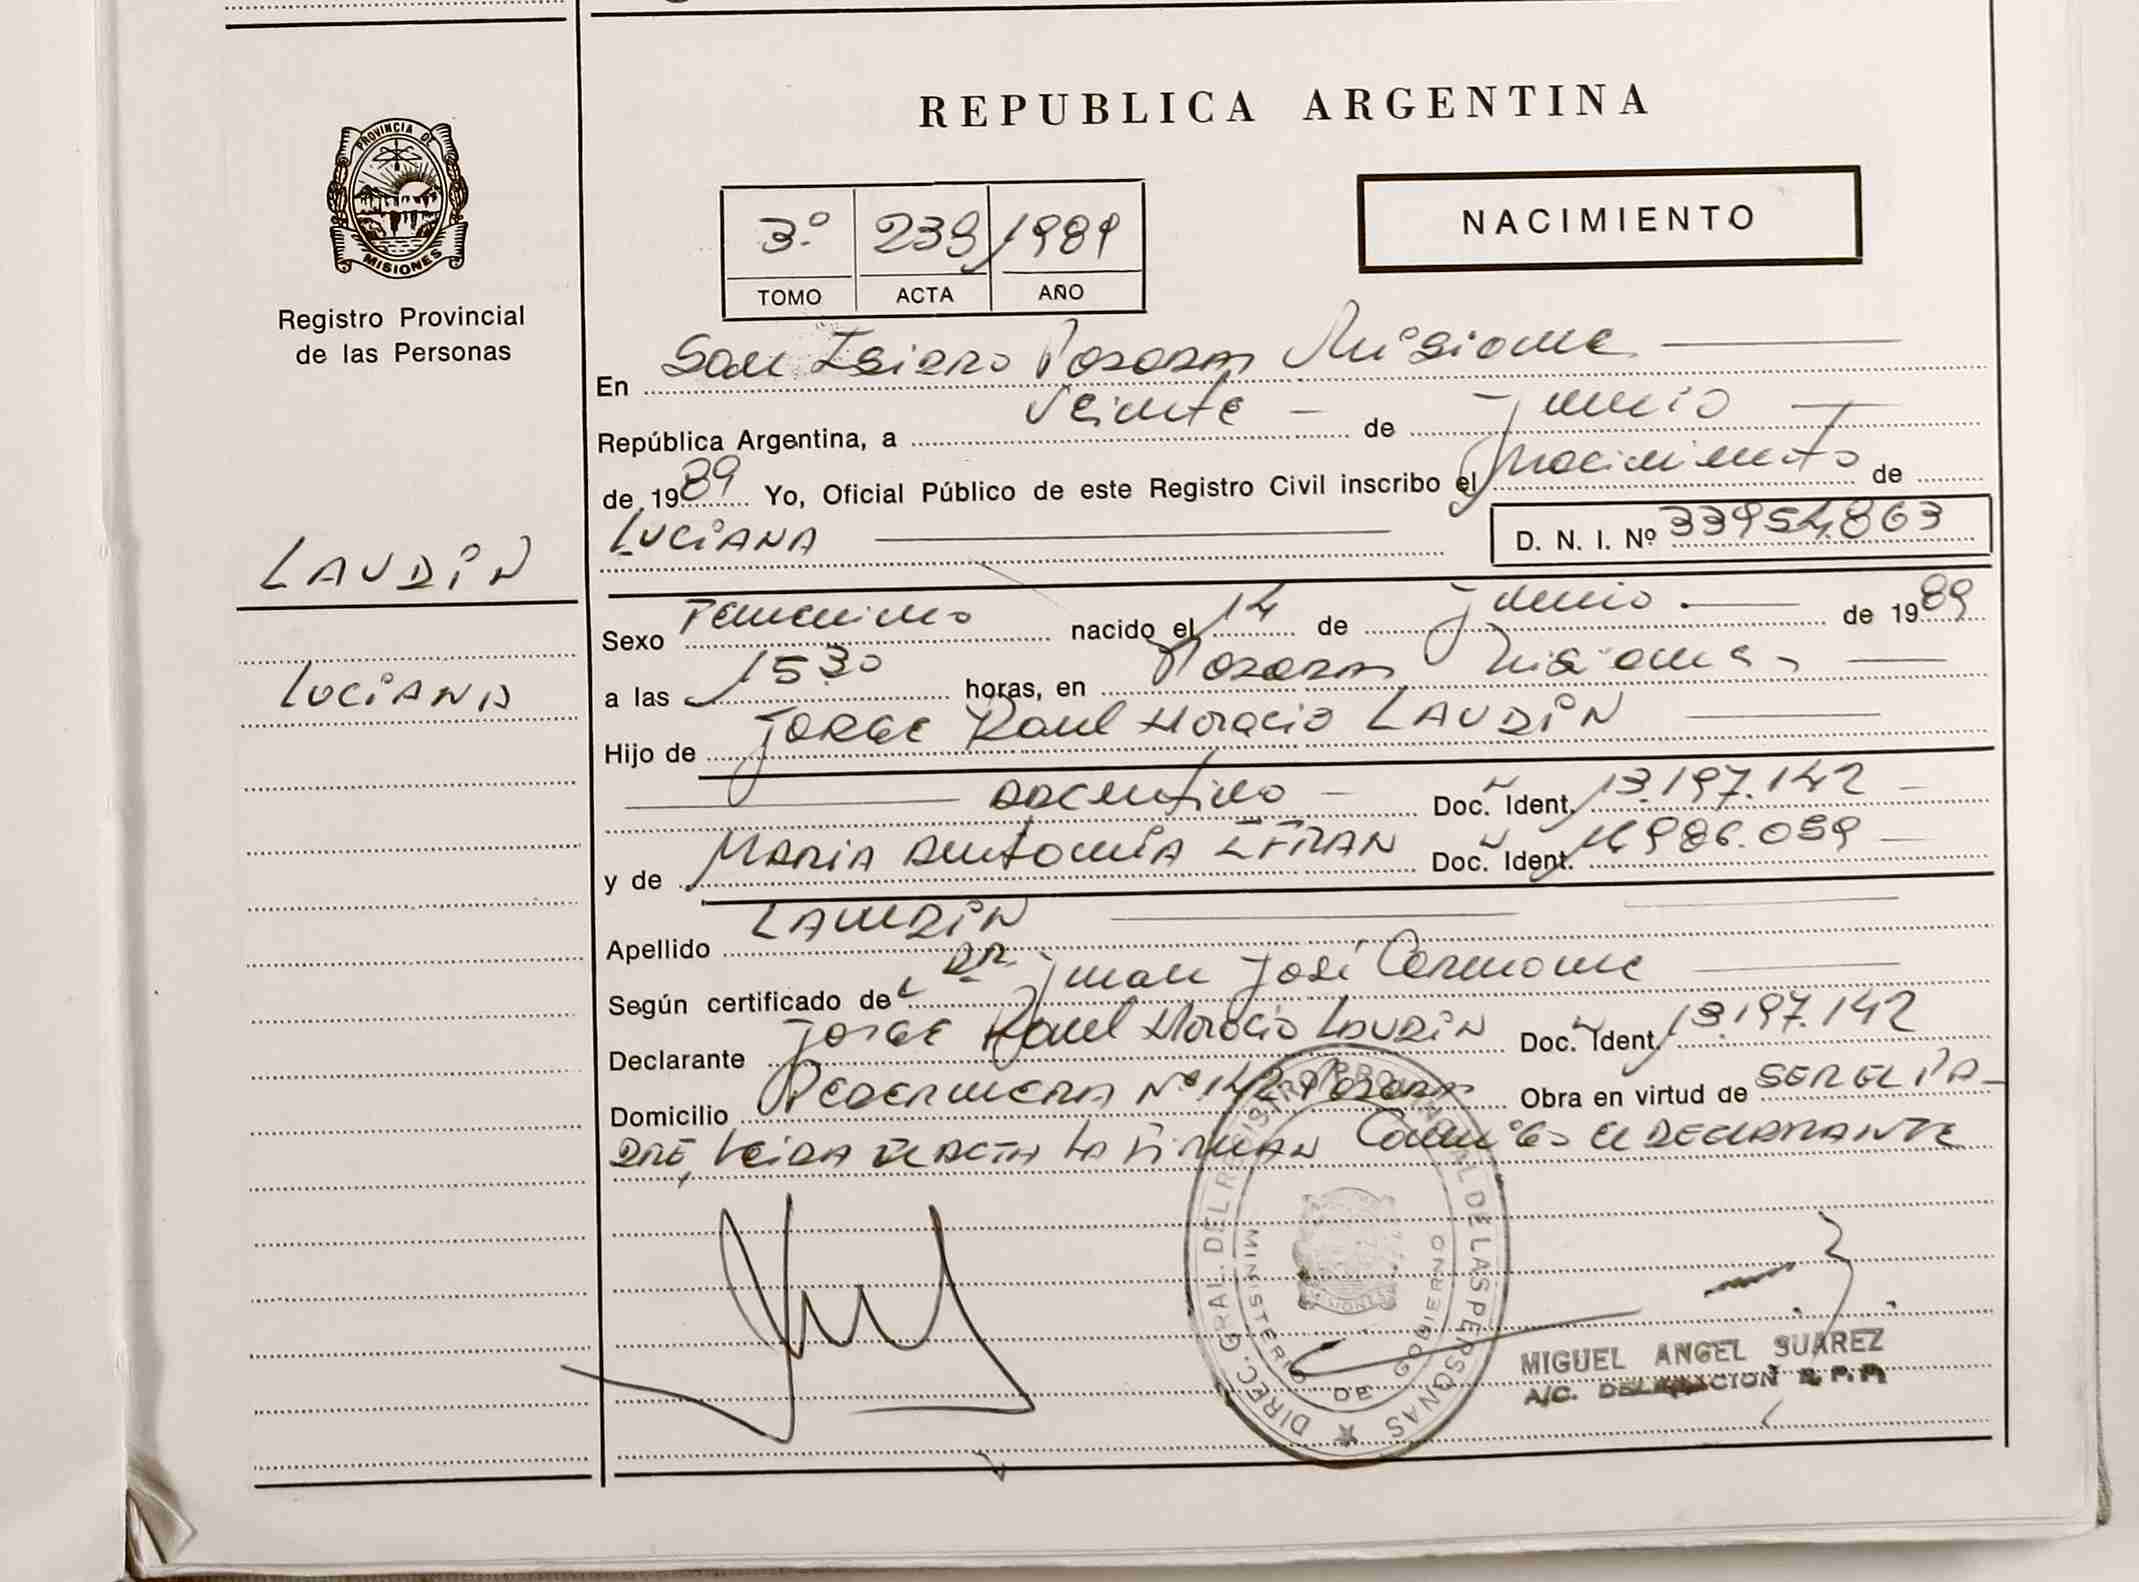 REPUBLICA ARGENTINA
PROVINCIA DE
MISIONES
Registro Provincial
de las Personas
3º 239/1989
TOMO ACTA AÑO
NACIMIENTO
En San Isidro Posadas Misiones
República Argentina, a Veinte de junio
de 1989 Yo, Oficial Público de este Registro Civil inscribo el nacimiento de
LUCIANA D. N. I. Nº 33954.863
LAUDIN
LUCIANA
Sexo Femenino nacido el 14 de junio de 1989
a las 1530 horas, en Posadas Misiones
Hijo de JORGE Raul Horacio LAUDIN
argentino Doc. Ident. 13.197.142
y de MARIA Antonia Doc. Ident. 986.059
Apellido LAUDIN
Según certificado de DR. Juan José
Declarante JORGE Raul Horacio LAUDIN Doc. Ident. 13.197.142
Domicilio PEDERNERA Nº 142 Posadas Obra en virtud de SER EL PA-
DRE, Leida EL ACTA LA FIRMAN el DECLARANTE
DIREC. GRAL. DEL REGISTRO PROVINCIAL DE LAS PERSONAS
MINISTERIO DE GOBIERNO
MISIONES
MIGUEL ANGEL SUAREZ
A/C. DELEGACION R.P.P.